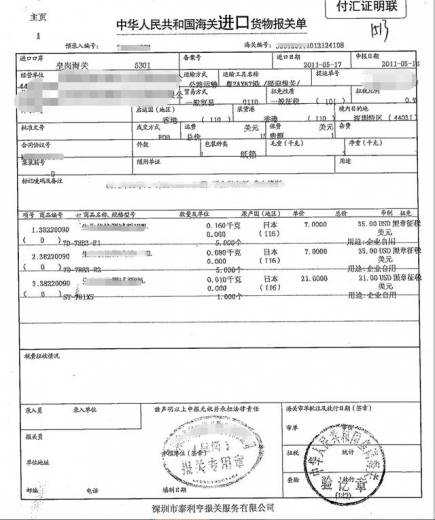 主页
付汇证明联
1
中华人民共和国海关进口货物报关单
预录入编号:
海关编号:
进口口岸
备案号
进口日期
申报日期
皇岗海关 5301
2011-05-17
2011-05-
经营单位
运输方式
运输工具名称
提运单号
公路运输
贸易方式
征免性质
征税比例
一般贸易 0110
一般征税 (101)
启运国(地区)
装货港
境内目的地
香港 (110)
香港 (110)
深圳特区 (44031)
批准文号
成交方式
运费
保费
杂费
FOB
总价
美元
美元
合同协议号
件数
包装种类
毛重(千克)
净重(千克)
纸箱
集装箱号
随附单证
用途
标记唛码及备注
项号 商品编号 商品名称、规格型号 数量及单位 原产国(地区) 单价 总价 币制 征免
1.38220090 0.160千克 日本 7.0000 35.00 USD 照章征税
( 0 ) 0.000 (116) 美元
7D-7883-R1 5.000个 用途:企业自用
2.38220090 0.080千克 日本 7.0000 35.00 USD 照章征税
( 0 ) 0.000 (116) 美元
7D-7883-R2 5.000个 用途:企业自用
3.38220090 0.010千克 日本 21.0000 21.00 USD 照章征税
( 0 ) 0.000 (116) 美元
1.000个 用途:企业自用
税费征收情况
录入员 录入单位
兹声明以上申报无讹并承担法律责任
海关审单批注及放行日期(签章)
报关员
审单
单位地址
申报单位(签章)
征税 统计
查验 放行
邮编 电话
填制日期
中华人民共和国皇岗海关
验讫章
深圳市泰利亨报关服务有限公司